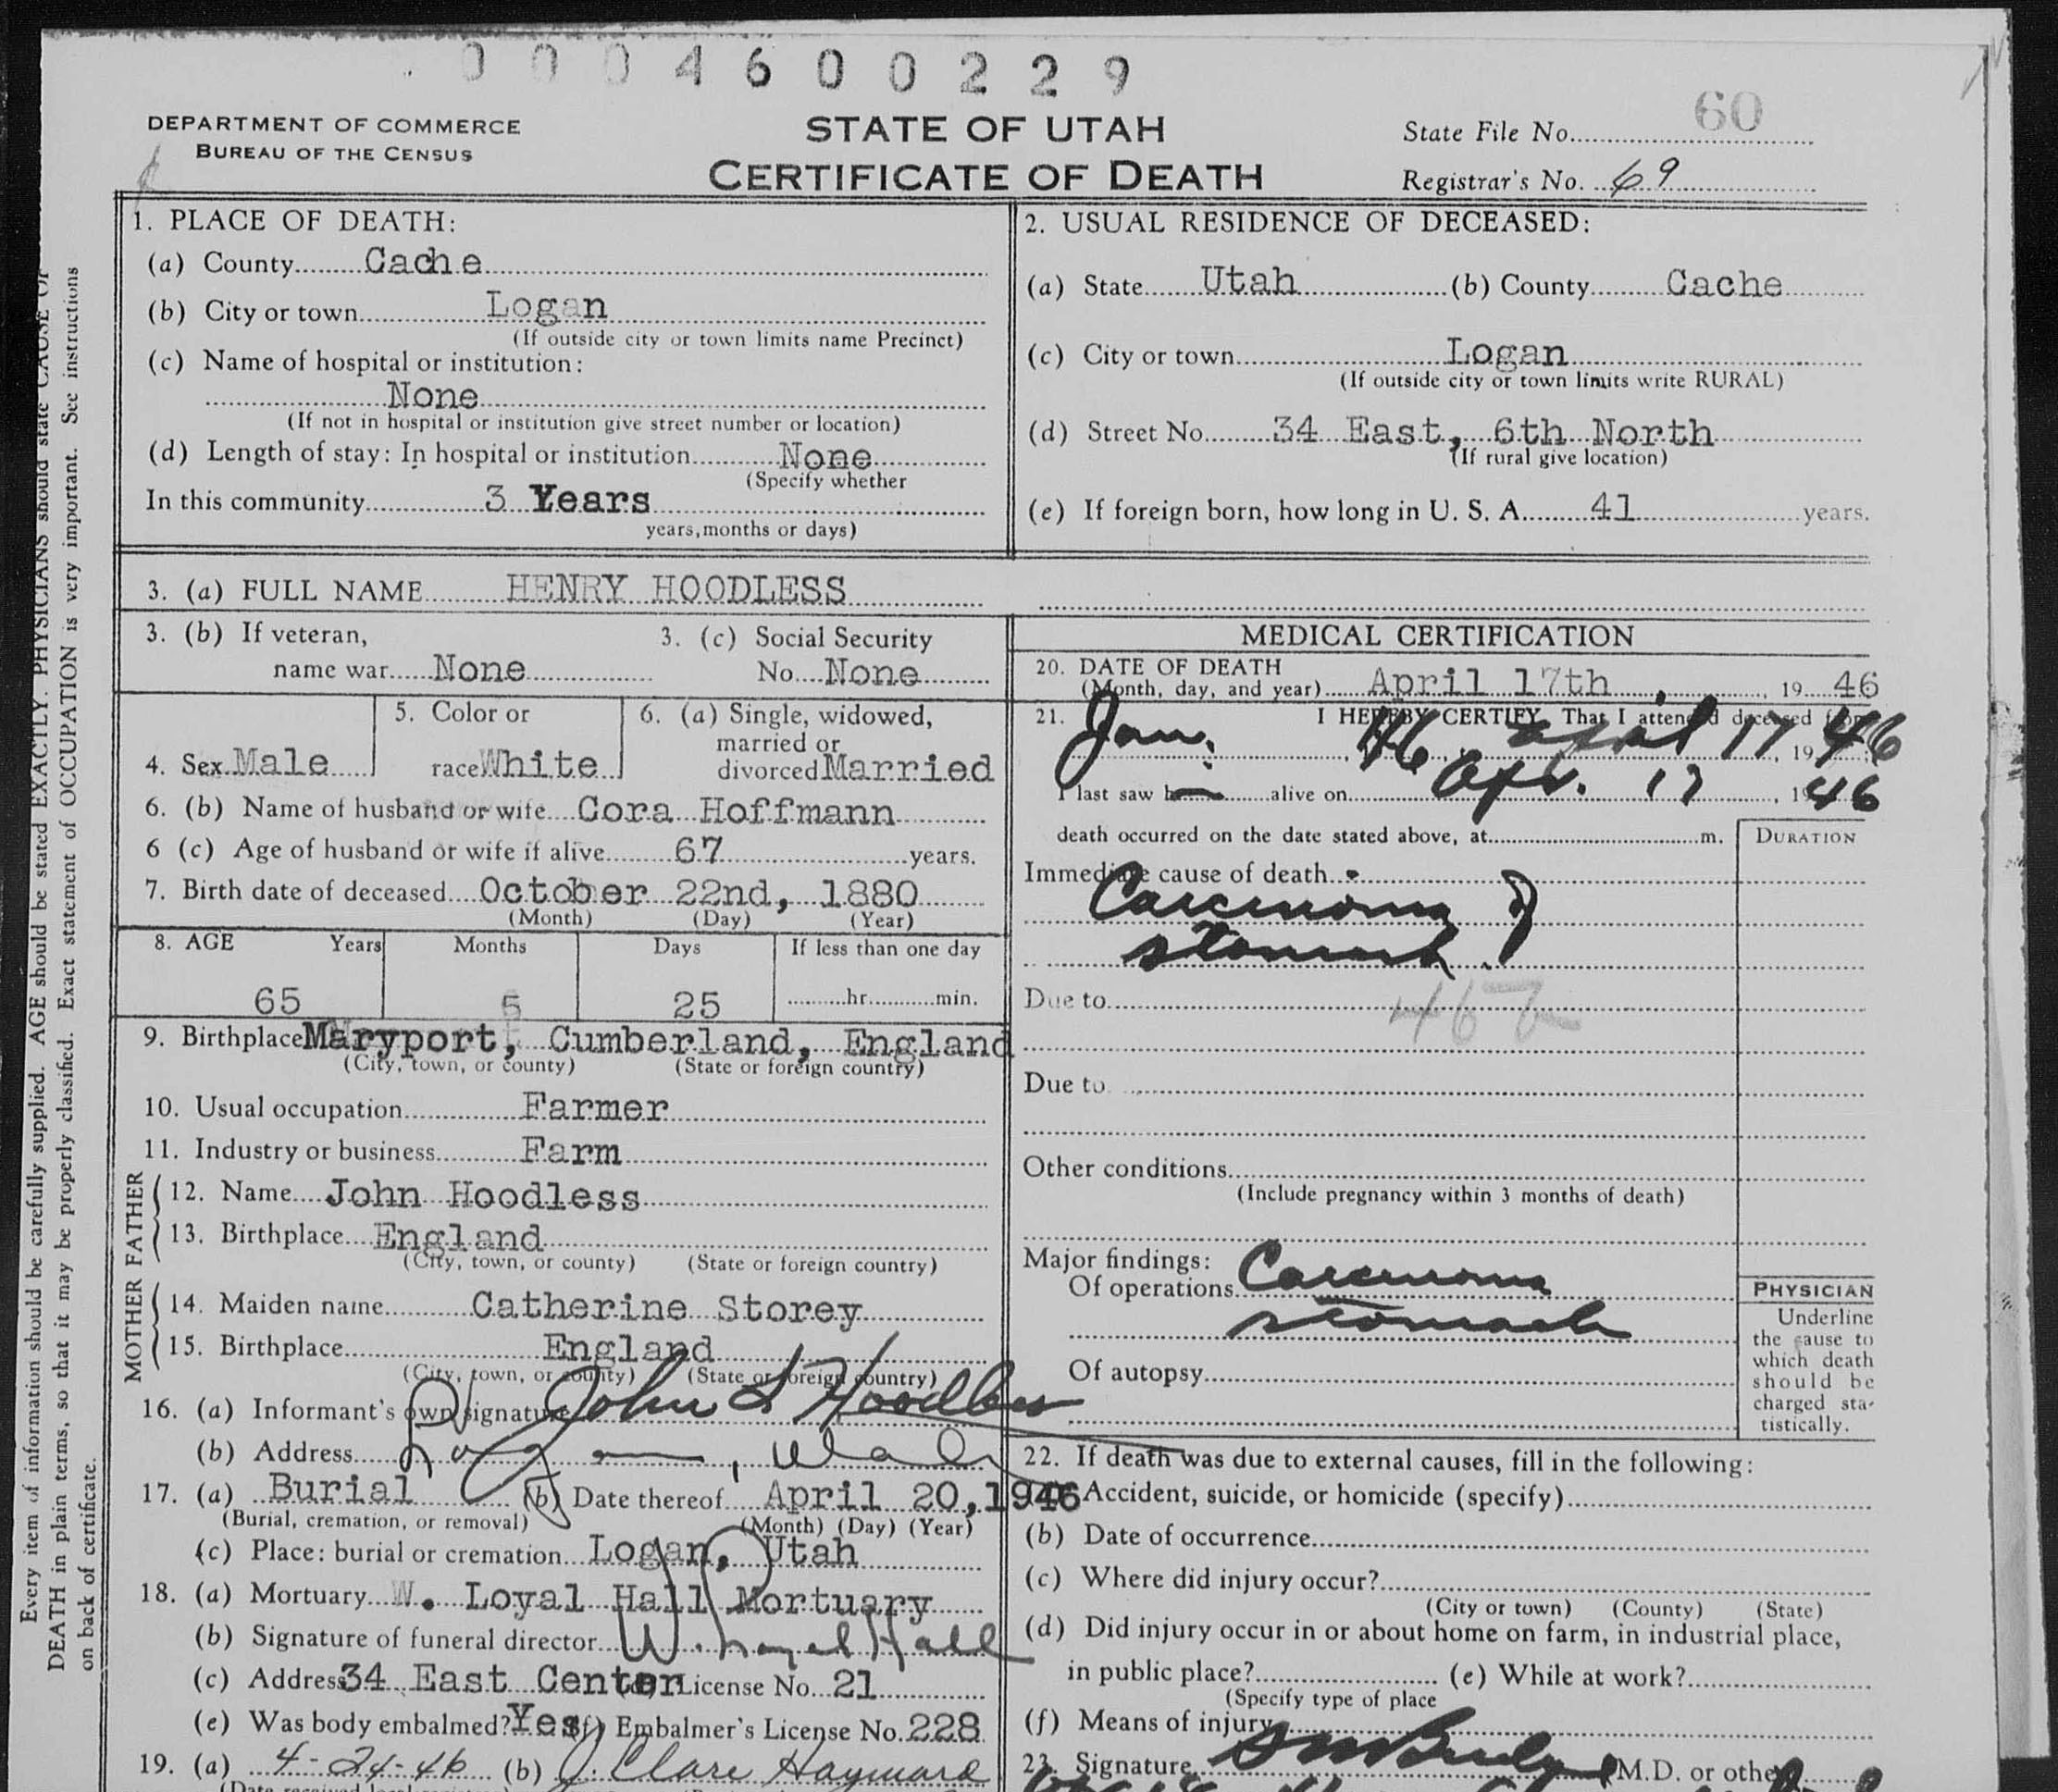 0 0 0 4 6 0 0 2 2 9
DEPARTMENT OF COMMERCE
BUREAU OF THE CENSUS
STATE OF UTAH
CERTIFICATE OF DEATH
State File No. 60
Registrar's No. 69
1. PLACE OF DEATH:
(a) County Cache
(b) City or town Logan
(If outside city or town limits name Precinct)
(c) Name of hospital or institution:
None
(If not in hospital or institution give street number or location)
(d) Length of stay: In hospital or institution None
(Specify whether
In this community 3 Years
years, months or days)
2. USUAL RESIDENCE OF DECEASED:
(a) State Utah (b) County Cache
(c) City or town Logan
(If outside city or town limits write RURAL)
(d) Street No. 34 East, 6th North
(If rural give location)
(e) If foreign born, how long in U. S. A. 41 years.
3. (a) FULL NAME HENRY HOODLESS
3. (b) If veteran,
name war None
3. (c) Social Security
No. None
4. Sex Male
5. Color or
race White
6. (a) Single, widowed,
married or
divorced Married
6. (b) Name of husband or wife Cora Hoffmann
6 (c) Age of husband or wife if alive 67 years.
7. Birth date of deceased October 22nd, 1880
(Month) (Day) (Year)
8. AGE Years Months Days If less than one day
65 5 25 hr. min.
9. Birthplace Maryport, Cumberland, England
(City, town, or county) (State or foreign country)
10. Usual occupation Farmer
11. Industry or business Farm
FATHER
12. Name John Hoodless
13. Birthplace England
(City, town, or county) (State or foreign country)
MOTHER
14. Maiden name Catherine Storey
15. Birthplace England
(City, town, or county) (State or foreign country)
16. (a) Informant's own signature John S Hoodless
(b) Address Logan, Utah
17. (a) Burial (b) Date thereof April 20, 1946
(Burial, cremation, or removal) (Month) (Day) (Year)
(c) Place: burial or cremation Logan, Utah
18. (a) Mortuary W. Loyal Hall Mortuary
(b) Signature of funeral director W. Loyal Hall
(c) Address 34 East Center License No. 21
(e) Was body embalmed? Yes (f) Embalmer's License No. 228
19. (a) 4-24-46 (b) J. Clare Hayward
MEDICAL CERTIFICATION
20. DATE OF DEATH
(Month, day, and year) April 17th, 1946
21. I HEREBY CERTIFY, That I attended deceased from
Jan. 46 April 17 1946
I last saw h alive on Apr. 17, 1946
death occurred on the date stated above, at m.
DURATION
Immediate cause of death
Carcinoma of
stomach
Due to 462
Due to
Other conditions
(Include pregnancy within 3 months of death)
Major findings:
Of operations Carcinoma
stomach
Of autopsy
PHYSICIAN
Underline
the cause to
which death
should be
charged sta-
tistically.
22. If death was due to external causes, fill in the following:
Accident, suicide, or homicide (specify)
(b) Date of occurrence
(c) Where did injury occur?
(City or town) (County) (State)
(d) Did injury occur in or about home on farm, in industrial place,
in public place? (e) While at work?
(Specify type of place
(f) Means of injury
23. Signature M.D. or other
Every item of information should be carefully supplied. AGE should be stated EXACTLY. PHYSICIANS should state CAUSE OF
DEATH in plain terms, so that it may be properly classified. Exact statement of OCCUPATION is very important. See instructions
on back of certificate.